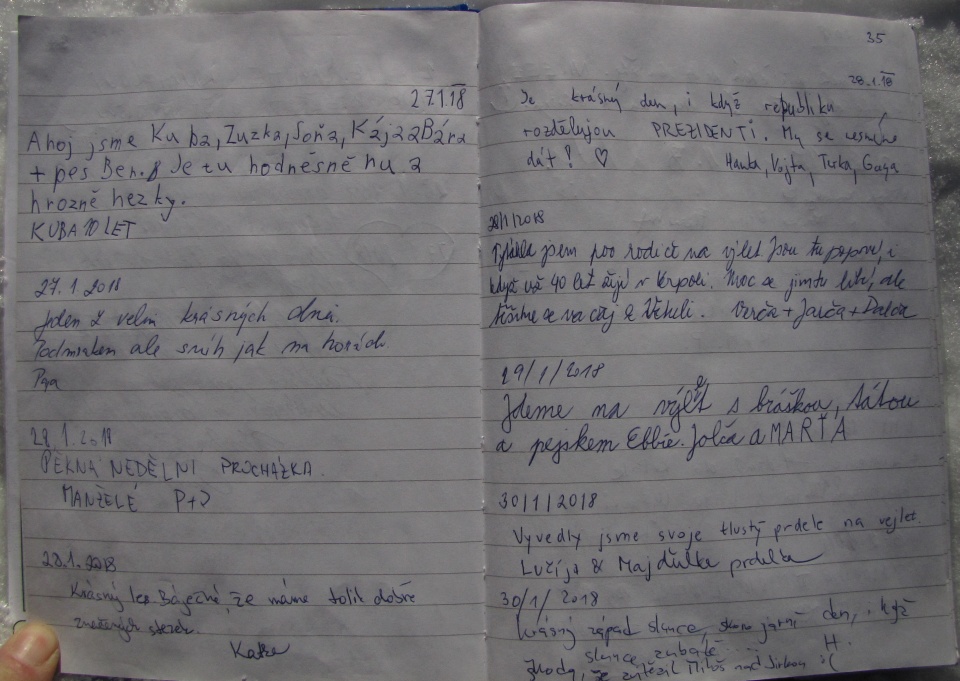 27.1.18
Ahoj jsme Kuba, Zuzka, Soňa, Kája a Bára
+ pes Ben. Je tu hodně sněhu a
hrozně hezky.
KUBA 10 LET
27.1 2018
Jeden z velmi krásných dnů.
Podmrakem ale sníh jak na horách.
28.1.2018
PĚKNÁ NEDĚLNÍ PROCHÁZKA.
MANŽELÉ P+J
28.1.2018
Krásný les Báječné, že máme tolik dobře
značených stezek.
Katka
35
28.1.18
Je krásný den, i když republiku
rozdělujou PREZIDENTI. My se nesmíme
dát! ♡ Hanka, Vojta, Terka, Gaya
28/1/2018
jsem pro rodiče na výlet. Jsou tu poprvé, i
když už 40 let žijí v Krpoli. Moc se jim tu líbí, ale
těšíme se na čaj 2 Věkeli. Verča + Jarča +
29/1/2018
Jdeme na výlet s bráškou, tátou
a pejskem Ebbie. Jolča a MARŤA
30/1/2018
Vyvedly jsme svoje tlustý prdele na vejlet.
Lucija & Majdulka prdelka
30/1/2018
krásný západ slunce, skoro jarní den, když
slunce zubaté... H.
škoda, že zvítězil Miloš nad Jirkou :(